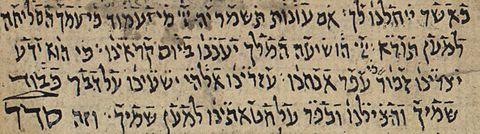 כאשר ייחלנו לך · אם עונות תשמר יה יי מי יעמוד כי עמך הסליחה
למען תורא · יי הושיעה המלך יעננו ביום קראינו · כי הוא ידע
יצרינו זכור כי עפר אנחנו · עזרינו אלהי ישעינו על דבר כבוד
שמיך והצילנו וכפר על חטאתינו למען שמיך · וזה סדר